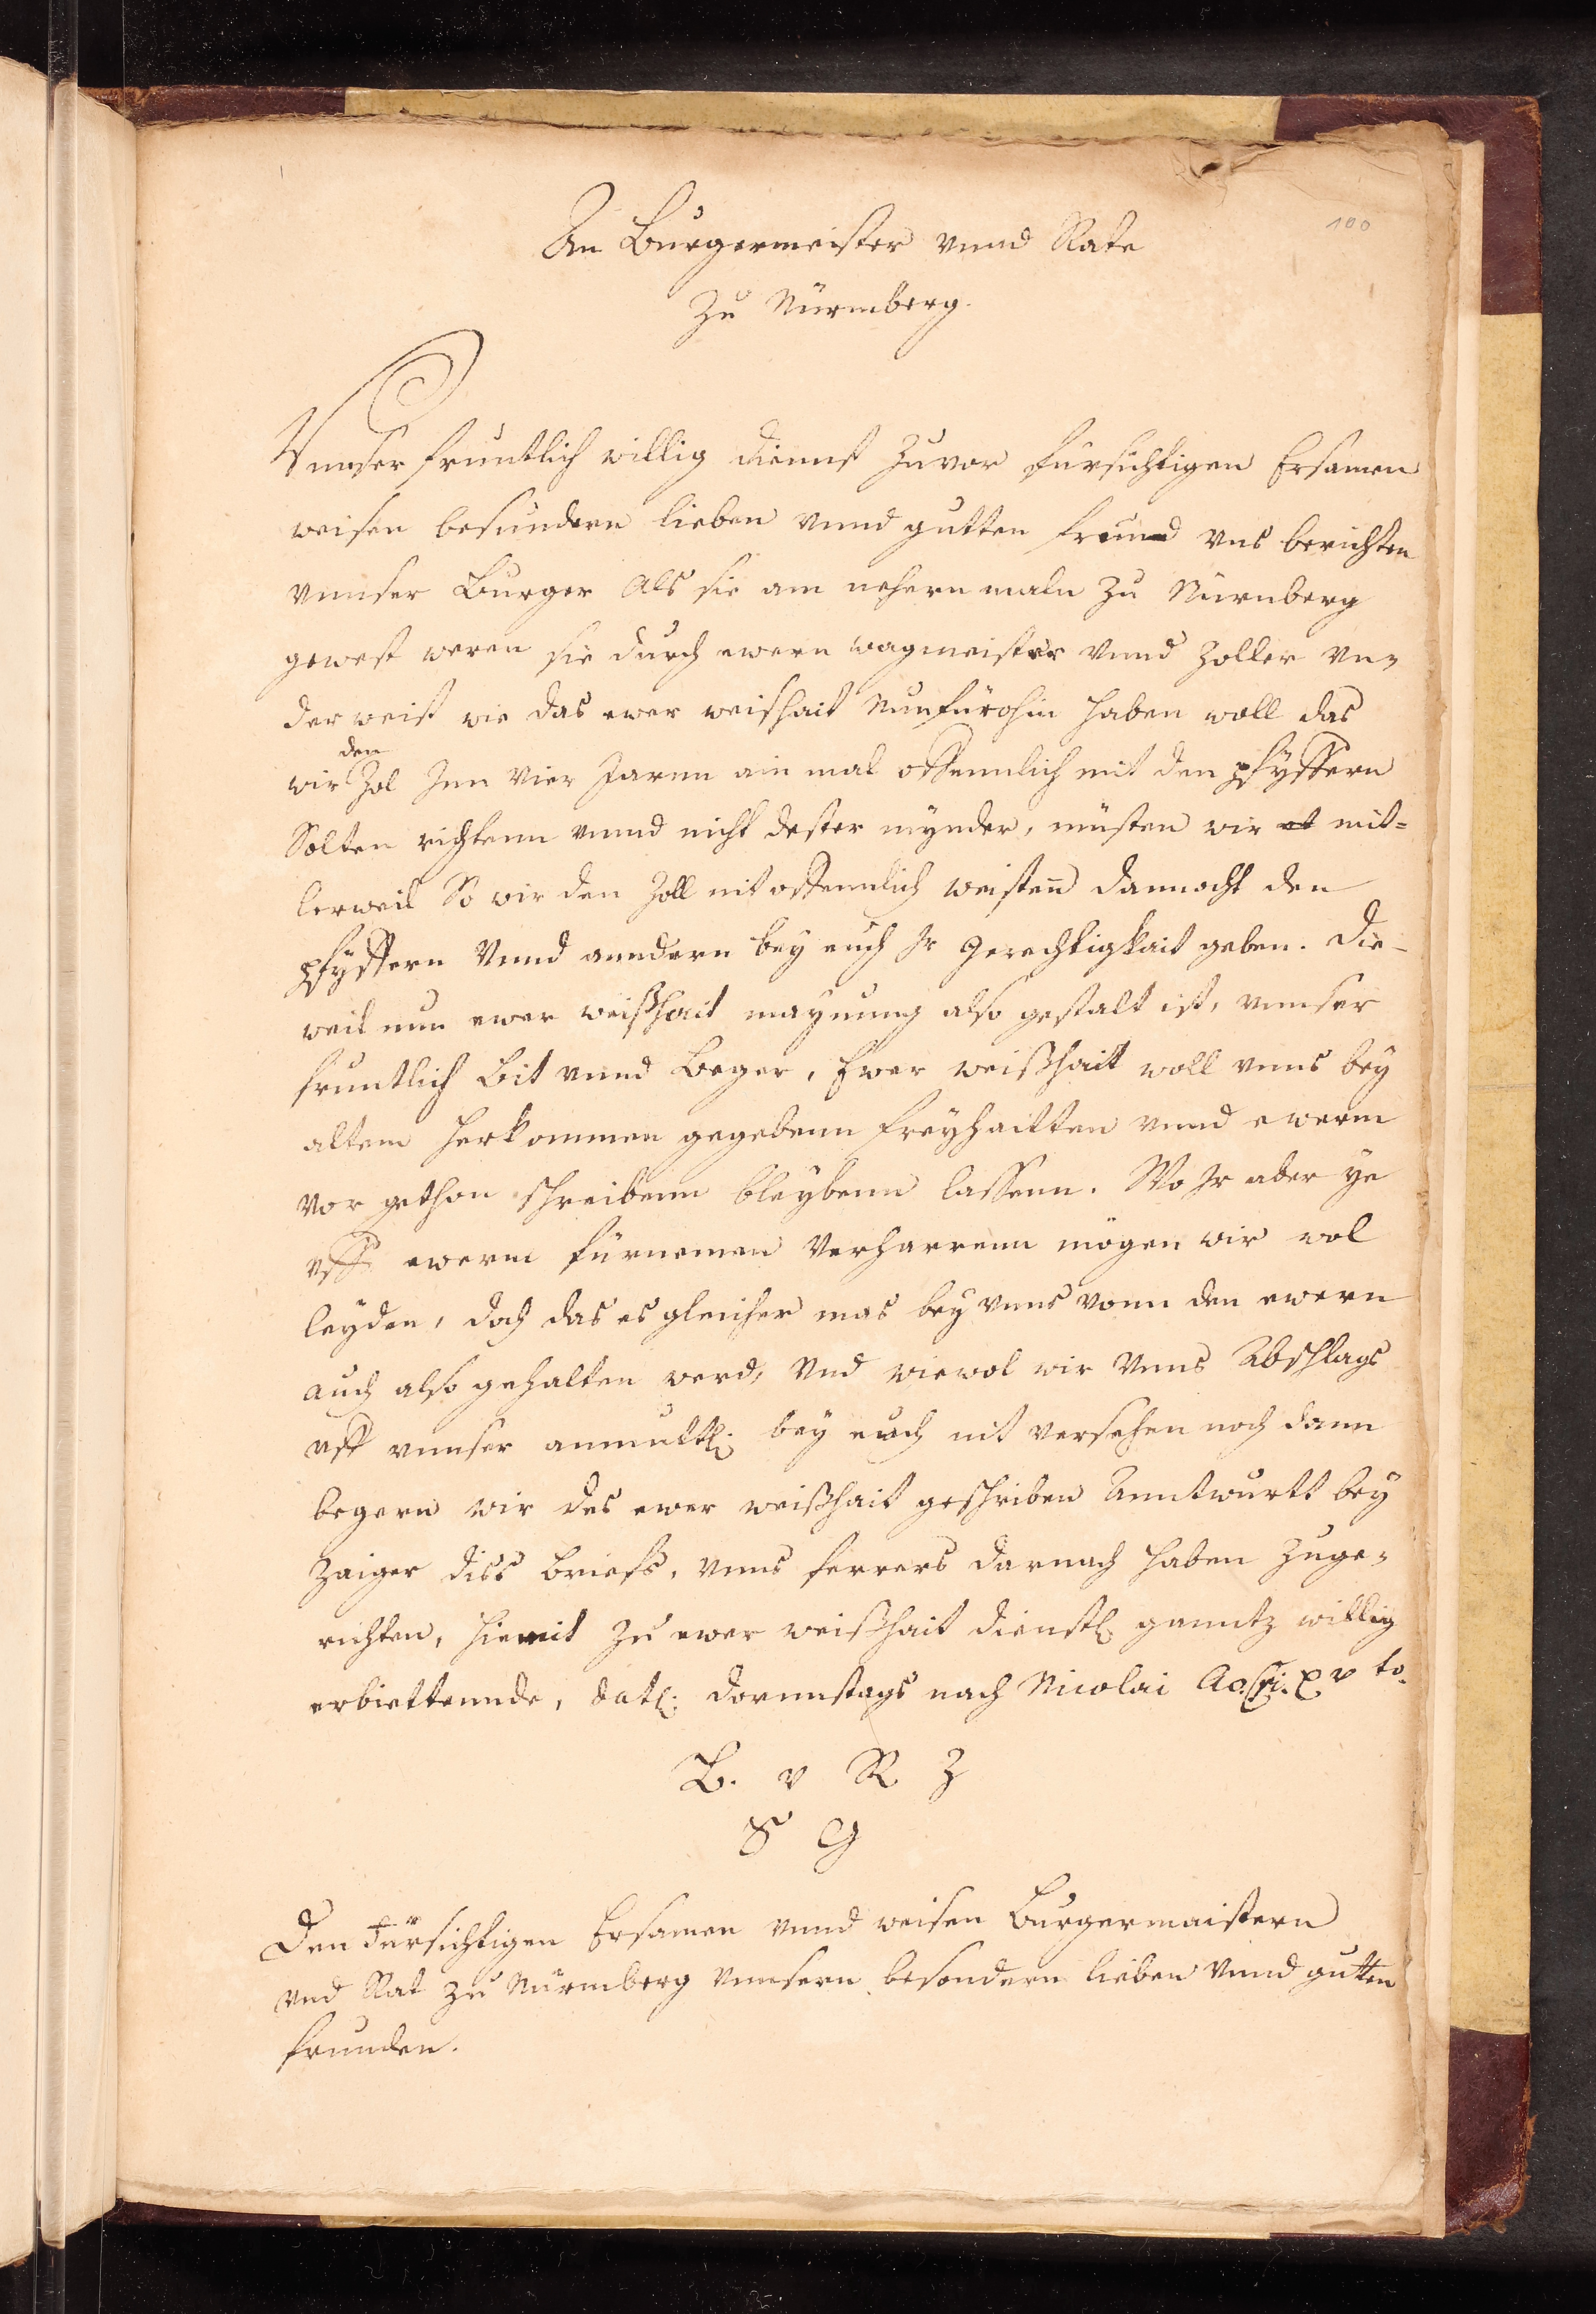 100
An Burgermeister vnnd Rate
Zu Nürmberg.
Vnnser fruntlich willig dienst zuvor fursichtigen Ersamen
weisen besundern lieben vnnd gutten freund vns berichten
vnnser Burger Als sie am nehern maln zu Nürnberg
gewest weren sie durch ewern wagmeister vnnd Zoller vn„
der weist wie das ewer weishait Nunfürohin haben woll das
den
wir Zol Inn vier Jarnn ain mal offennlich mit den pfÿffern
Solten richtenn vnnd nicht dester mÿnder, müsten wir mit=
lerweil So wir den Zoll nit offennlich weistenn dannocht den
pfÿffern Vnnd anndern bey euch Ir Gerechtigkait geben. Die-
weil nun ewer weißhait maynung also gestalt ist, vnnser
fruntlich bit vnnd beger, Ewer weißhait woll vnns bey
altem herkommen gegebenn freyhaitten vnnd ewerm
vor gethon schreibenn bleybenn lassenn. Wo Ir aber ye
vff ewerm fürnemen Verharrenn mögen wir wol
leyden, doch das es gleicher mas bey vnns vonn den ewern
auch also gehalten werd, Vnd wiewol wir Vnns Abschlags
vff vnnser anmuttl: bey euch nit versehen noch dann
begern wir des ewer weißhait geschriben Anntwurtt bey
Zaiger diss briefs, vnns ferrers darnach haben zuge„
richten, hiemit zu ewer weißhait dienstl: ganntz willig
erbiettennde, datl: dornnstags nach Nicolai Ao. xv to.
B. v R Z
S G
Den Fürsichtigen Ersamen vnnd weisen Burgermaistern
vnd Rat zu Nürmberg Vnnsern besondern lieben Vnnd gutten
frunden.